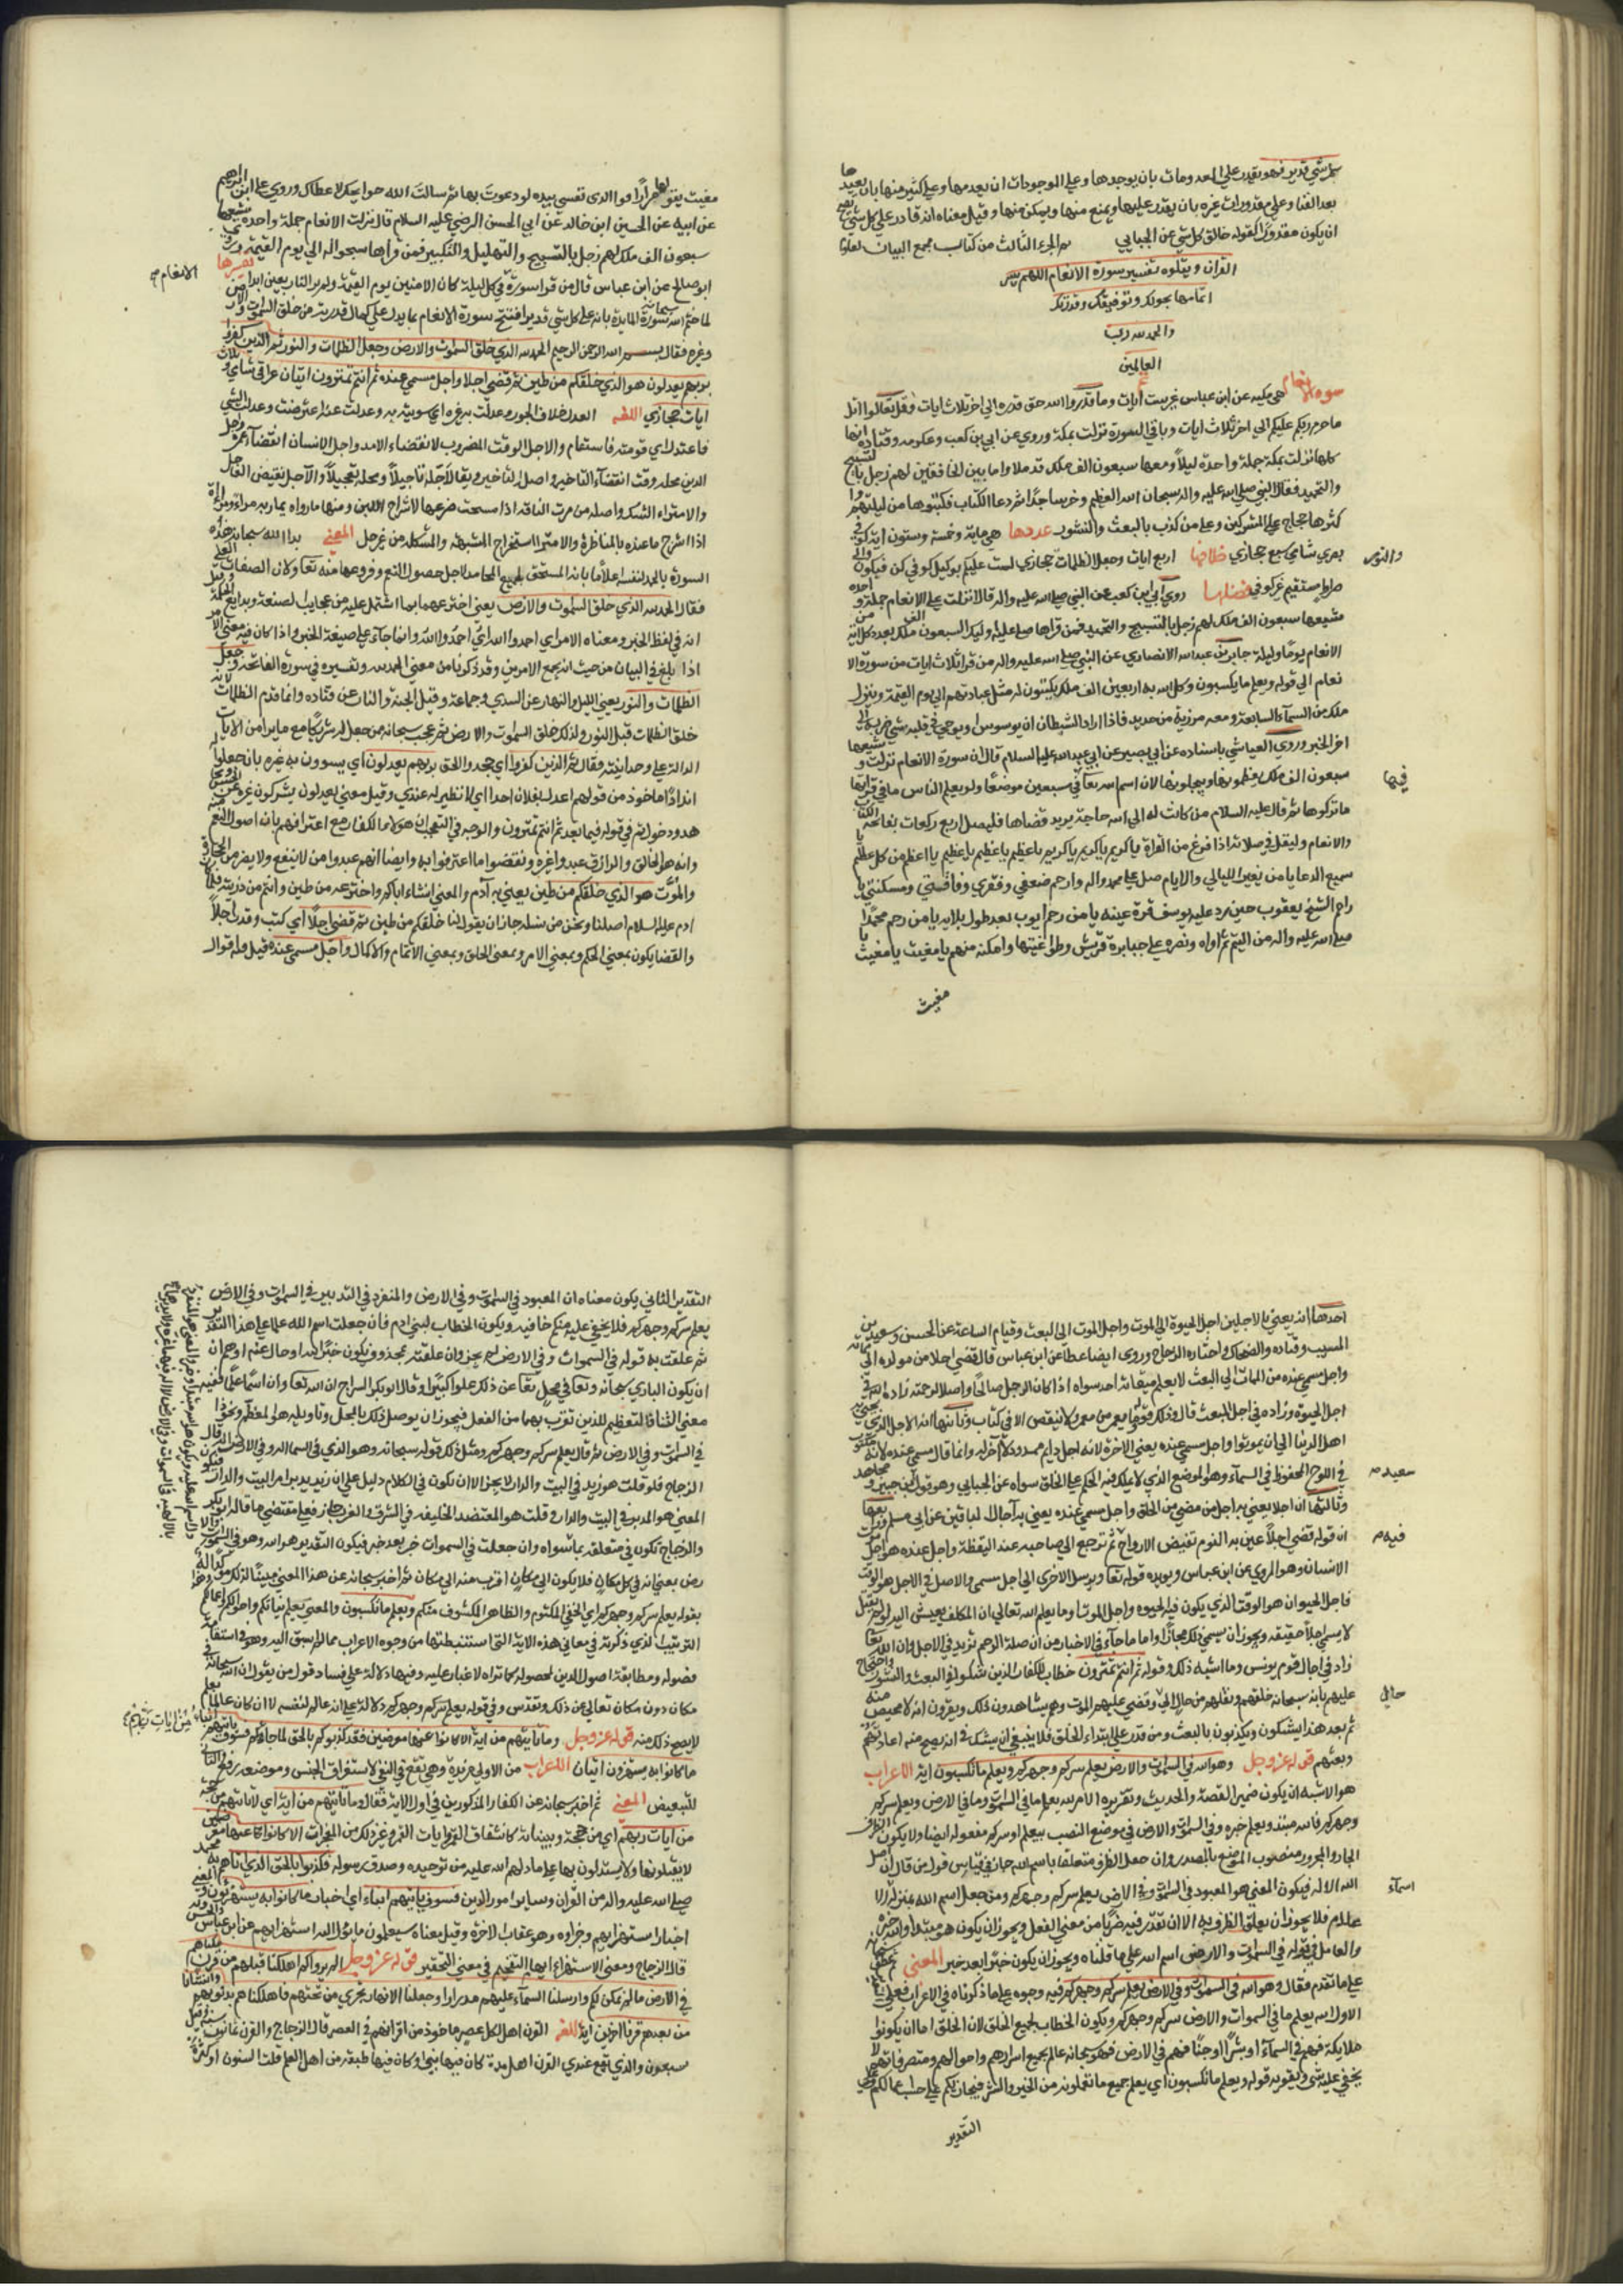 كل شي قدير فهو يقدر علي المعدومات بان يوجدها وعلي الموجودات ان يعدمها وعلي كثير منها بان يعيدها
بعد الفنا وعلي مقدورات غيره بان يقدر عليها ويمنع منها ويمكن منها وقيل معناه انه قادر علي كل شي يصح
ان يكون مقدورا كقوله خالق كل شي عن الجبايي تم الجزء الثالث من كتاب مجمع البيان لعلوم
القران ويتلوه تفسير سورة الانعام اللهم يسر
اتمامها بحولك وتوفيقك وقدرتك
والحمد لله رب
العالمين
سورة الانعام هي مكيه عن ابن عباس غير ست ايات وما قدروا الله حق قدره الي اخر ثلاث ايات وقل تعالوا اتل
ما حرم ربكم عليكم الي اخر ثلاث ايات وباقي السورة نزلت بمكة وروي عن ابي بن كعب وعكرمه وقتاده انها
كلها نزلت بمكة جملة واحدة ليلا ومعها سبعون الف ملك قد ملاوا ما بين الخافقين لهم زجل بالتسبيح
والتحميد فقال النبي صلي الله عليه واله سبحان الله العظيم وخر ساجدا ثم دعا الكتاب فكتبوها من ليلتهم
كثرها حجاج علي المشركين وعلي من كذب بالبعث والنشور عددها هي ماية وخمسة وستون اية كوفي
بصري شامي سبع حجازي خلافها اربع ايات وجعل الظلمات حجازي لست عليكم بوكيل كوفي كن فيكون والي
والنور
صراط مستقيم غير كوفي فضلها روي ابي بن كعب عن النبي صلي الله عليه واله قال انزلت علي الانعام جملة واحده
مشيعها سبعون الف ملك لهم زجل بالتسبيح والتحميد فمن قراها صلي عليه اوليك السبعون الف ملك بعدد كل اية من
الانعام يوما وليلة جابر بن عبد الله الانصاري عن النبي صلي الله عليه واله من قرا ثلاث ايات من سورة الا
نعام الي قوله ويعلم ما يكسبون وكل الله به اربعين الف ملك يكتبون له مثل عبادتهم الي يوم القيمة وينزل
ملك من السمآء السابعة ومعه مرزبة من حديد فاذا اراد الشيطان ان يوسوس او يوحي في قلبه شي ضربه الي
اخر الخبر وروي العياشي باسناده عن ابي بصير عن ابي عبد الله عليه السلام قال ان سورة الانعام نزلت وشيعها
سبعون الف ملك فعظموها وبجلوها لان اسم الله تعآ في سبعين موضعا ولو يعلم الناس ما في قراتها
فيها
ما تركوها ثم قال عليه السلام من كانت له الي الله حاجة يريد قضاها فليصل اربع ركعات بفاتحة الكتاب
والانعام وليقل في صلاته اذا فرغ من القراة يا كريم يا كريم يا كريم يا عظيم يا عظيم يا عظيم يا اعظم من كل عظيم يا
سميع الدعا يا من لا يغيره الليالي والايام صل علي محمد واله وارحم ضعفي وفقري وفاقتي ومسكنتي يا
راحم الشيخ يعقوب حين رد عليه يوسف قرة عينه يا من رحم ايوب بعد طول بلايه يا من رحم محمدا
صلي الله عليه واله من اليتم ثم اواه ونصره علي جبابرة قريش وطواغيتها وامكنه منهم يا مغيث يا مغيث يا
مغيث
مغيث يقولها مرارا فوا الذي نفسي بيده لو دعوت بها ثم سالت الله حوايجك لاعطاك وروي علي ابن ابراهيم
عن ابيه عن الحسين ابن خالد عن ابي الحسن الرضي عليه السلام قال نزلت الانعام جملة واحدة يشيعها
سبعون الف ملك لهم زجل بالتسبيح والتهليل والتكبير فمن قراها سبحوا له الي يوم القيمة وروي
ابو صالح عن ابن عباس قال من قرا سورة في كل ليلة كان من الامنين يوم القيمة ولم ير النار بعينه ابدا تفسيرها
الانعام صح
لما ختم الله سبحانه سورة المايدة بانه علي كل شي قدير افتتح سورة الانعام بما يدل علي كمال قدرته من خلق السموات والارض
وغيره فقال بسم الله الرحمن الرحيم الحمد لله الذي خلق السموات والارض وجعل الظلمات والنور ثم الذين كفروا
بربهم يعدلون هو الذي خلقكم من طين ثم قضي اجلا واجل مسمي عنده ثم انتم تمترون ايتان عراقي شامي ثلاث
ايات حجازي اللغة العدل خلاف الجور وعدلت به غيره اي سويته به وعدلت عنه اعرضت وعدلت الشي
فاعتدل اي قومته فاستقام والاجل الوقت المضروب لانقضاء الامد واجل الانسان انقضآء عمره واجل
الدين محله وقت انقضآء التاخير واصله التاخير ويقال اجله تاجيلا وعجله تعجيلا والآجل نقيض العاجل
والامتراء الشك واصله من مرت الناقة اذا مسحت ضرعها لاستخراج اللبن ومنها ماراه يماريه مرآء ومماراة
اذا استخرج ما عنده بالمناظرة والامتراء استخراج الشبهة والمشكلة من غير حل المعني بدا الله سبحانه هذه
السورة بالحمد لنفسه اعلاما بانه المستحق لجميع المحامد لاجل حصول النعم وفروعها منه تعآ ولان الصفات العلي
فقال الحمد لله الذي خلق السموات والارض يعني اخترعهما بما اشتمل عليه من عجايب الصنعة وبدايع الحكمة وقيل
انه في لفظ الخبر ومعناه الامر اي احمدوا الله وانما جآء علي صيغة الخبر واذا كان فيه معني الامر
اذا بلغ في البيان من حيث انه يجمع الامرين وقد ذكرنا من معني الحمد لله وتفسيره في سورة الفاتحة وجعل
الظلمات والنور يعني الليل والنهار عن السدي وجماعة وقيل الجنة والنار عن قتاده وانما قدم الظلمات لانه
خلق الظلمات قبل النور ولذلك خلق السموات والارض ثم عجب سبحانه ممن جعل له شريكا مع ما يرا من الآيات
الدالة علي وحدانيته فقال ثم الذين كفروا اي جحدوا الحق بربهم يعدلون اي يسوون به غيره بان جعلوا له
اندادا ماخوذ من قولهم ما اعدل بفلان احدا اي لا نظير له عندي وقيل معني يعدلون يشركون غيره عن الحسن ومجاهد
ودخول ثم في قوله فيما بعد ثم انتم تمترون والوجه في التعجيب ان هولاء الكفار مع اعترافهم بان اصول النعم منه
وانه هو الخالق والرازق عبدوا غيره ونقضوا ما اعترفوا به وايضا انهم عبدوا من لا ينفع ولا يضر من الحجارة
والموات هو الذي خلقكم من طين يعني به آدم والمعني انشاء اباكم واخترعه من طين وانتم من ذريته فلما كان
ادم عليه السلام اصلنا ونحن من نسله جاز ان يقول لنا خلقكم من طين ثم قضي اجلا اي كتب وقدر اجلا
والقضا يكون بمعني الحكم وبمعني الامر وبمعني الخلق وبمعني الاتمام والاكمال واجل مسمي عنده قيل فيه اقوال
احدها انه يعني بالاجلين اجل الحيوة الي الموت واجل الموت الي البعث وقيام الساعة عن الحسن وسعيد بن
المسيب وقتاده والضحاك واختاره الزجاج وروي ايضا عطا عن ابن عباس قال قضي اجلا من مولده الي مماته
واجل مسمي عنده من الممات الي البعث لا يعلم ميقاته احد سواه اذا كان الرجل صالحا واصلا لرحمه زاد الله له في
اجل الحيوة وزاده في اجل المبعث قال وذلك قوله وما يعمر من معمر ولا ينقص الا في كتاب وثانيها انه الاجل الذي
اهل الدنيا الي ان يموتوا واجل مسمي عنده يعني الاخرة لانه اجل دايم ممدود لا آخر له وانما قال مسمي عنده لانه مكتوب
في اللوح المحفوظ في السمآء وهو الموضع الذي لا يملك فيه الحكم علي الخلق سواه عن الجبايي وهو قول ابن جبير ومجاهد
سعيد صح
وثالثها ان اجلا يعني به اجل من مضي من الخلق واجل مسمي عنده يعني به آجال الباقين عن ابي مسلم ورابعها
ان قوله قضي اجلا عين به النوم تقبض الارواح ثم ترجع الي صاحبه عند اليقظة واجل عنده هو اجل موت
فيه صح
الانسان وهو المروي عن ابن عباس ويويده قوله تعآ ويرسل الاخري الي اجل مسمي والاصل في الاجل هو الوقت
فاجل الحيوان هو الوقت الذي يكون فيه الحيوه واجل الموت وما يعلم الله تعالي ان المكلف يعيش اليه لو لم يقتل
لا يسمي اجلا حقيقة ويجوز ان يسمي ذلك مجازا واما ما جآء في الاخبار من ان صلة الرحم تزيد في الاجل وان الله تعآ
زاد في اجال قوم يونس وما اشبه ذلك وقوله ثم انتم تمترون خطاب للكفار الذين شكوا في البعث والنشور واحتجاج
عليهم بانه سبحانه خلقهم ونقلهم من حال الي وقضي عليهم الموت وهم يشاهدون ذلك ويقرون انه لا محيص منه
حال
ثم بعد هذا يشكون ويكذبون بالبعث ومن قدر علي ابتداء الخلق فلا ينبغي ان يشك في انه يصح منه اعادتهم
وبعثهم قوله عز وجل وهو الله في السموات والارض يعلم سركم وجهركم ويعلم ما تكسبون اية الاعراب
هو الاشبه ان يكون ضمير القصة والحديث وتقريره الامر الله يعلم ما في السموات وما في الارض ويعلم سركم
وجهركم فالله مبتدء ويعلم خبره وفي السموات والارض في موضع النصب بيعلم او سركم مفعوله ايضا ولا يكون الظرف
الجار والمجرور منصوب الموضع بالمصدر وان جعل الظرف متعلقا باسم الله جاز في قياس قول من قال ان اصل
الله الاله فيكون المعني هو المعبود في السموات وفي الارض يعلم سركم وجهركم ومن جعل اسم الله بمنزلة
اسمآء
علام فلا يجوز ان يعلق الظرف به الا ان تقدر فيه ضربا من معني الفعل ويجوز ان يكون هو مبتدا والله خبره
والعامل في قوله في السموات والارض اسم الله علي ما قلناه ويجوز ان يكون خبرا بعد خبر المعني ثم عطف
علي ما تقدم فقال وهو الله في السموات وفي الارض يعلم سركم وجهركم فيه وجوه علي ما ذكرناه في الاعراب فعلي
الاول الله يعلم ما في السموات والارض سركم وجهركم ويكون الخطاب لجميع الخلق لان الخلق اما ان يكونوا
ملايكة فهم في السمآء او بشرا او جنا فهم في الارض فهو سبحانه عالم بجميع اسرارهم واحوالهم ومتصرفاتهم لا
يخفي عليه شي ويقويه قوله ويعلم ما تكسبون اي يعلم جميع ما تعملونه من الخير والشر فيجازيكم علي حسب اعمالكم وعلي
التقدير
التقدير الثاني يكون معناه ان المعبود في السموات وفي الارض والمنفرد في التدبير في السموات وفي الارض
يعلم سركم وجهركم فلا يخفي عليه منكم خافيه ويكون الخطاب لبني ادم فان جعلت اسم الله علما علي هذا التقدير
ثم علقت به قوله في السموات وفي الارض لم يجز وان علقته بمحذوف يكون خبرا لله او حال عنه اوهم ان
ان يكون الباري سبحانه وتعآ في محل تعآ عن ذلك علوا كبيرا وقال ابو بكر السراج ان الله تعآ وان اسما علما ففيه
معني الثنا والتعظيم للذين تقرب بهما من الفعل فيجوز ان يوصل ذلك بالمحل وتاويله هو المعظم او نحو ذا
في السموات وفي الارض ثم قال يعلم سركم وجهركم ومثل ذلك قوله سبحانه وهو الذي في السما اله وفي الارض اله قال
الزجاج فلو قلت هو زيد في البيت والدار لم يجز الا ان يكون في الكلام دليل علي ان زيد يدبر امر البيت والدار فيكون
المعني هو المدبر في البيت والدار ولو قلت هو المعتضد الخليفه في الشرق والغرب جاز فعلي مقتضي ما قاله ابو بكر
والزجاج يكون في متعلقة بما سواه وان جعلت في السموات خبر بعد خبر فيكون التقدير هو الله وهو في السموات والا
رض يعني انه في كل مكان فلا يكون الي مكان اقرب منه الي مكان ثم اخبر سبحانه عن هذا المعني مبينا لذلك
بقوله يعلم سركم وجهركم اي الخفي المكتوم والظاهر المكشوف منكم ويعلم ما تكسبون والمعني يعلم نياتكم واحوالكم واعمالكم
الترتيب الذي ذكرته في معاني هذه الاية التي استنبطتها من وجوه الاعراب مما لم اسبق اليه وهو في استقامة
فصوله ومطابقة اصول الدين لمحصوله كما تراه لا غبار عليه وفيها دلالة علي فساد قول من يقول ان الله سبحانه في
مكان دون مكان تعالي عن ذلك وتقدس وفي قوله يعلم سركم وجهركم دلالة علي انه عالم لنفسه لان من كان عالما بعلم
لا يصح ذلك منه قوله عز وجل وما تاتيهم من اية الا كانوا عنها معرضين فقد كذبوا بالحق لما جاءهم فسوف ياتيهم انباء
من ايات ربهم صح
ما كانوا به يستهزءون ايتان الاعراب من الاولي مزيدة وهي تقع في النفي لاستغراق الجنس وموضعه رفع
للتبعيض المعني ثم اخبر سبحانه عن الكفار المذكورين في اول الاية فقال وما تاتيهم من اية اي لا تاتيهم حجة
من آيات ربهم اي من حججه وبيناته كانشقاق القمر وايات القران وغير ذلك من المعجزات الا كانوا عنها معرضين
لا يقبلونها ولا يستدلون بها علي ما دلهم الله عليه من توحيده وصدق رسوله فكذبوا بالحق الذي اتاهم به محمد
صلي الله عليه واله من القران وساير امور الدين فسوف ياتيهم انباء اي اخبار ما كانوا به يستهزءون
اخبار استهزايهم وجزاوه وهو عقاب الاخرة وقيل معناه سيعلمون ما يؤل اليه استهزايهم عن ابن عباس والحسن
قال الزجاج ومعني الاستهزاء ايهام التفخيم في معني التحقير قوله عز وجل الم يروا كم اهلكنا قبلهم من قرن مكناهم
في الارض ما لم نمكن لكم وارسلنا السمآء عليهم مدرارا وجعلنا الانهار تجري من تحتهم فاهلكناهم بذنوبهم وانشانا
من بعدهم قرنا اخرين اية اللغة القرن اهل كل عصر ماخوذ من اقرانهم في العصر قال الزجاج والقرن ثمانون سنة وقيل
سبعون والذي يقع عندي القرن اهل مدة كان فيها نبي او كان فيها طبقة من اهل العلم قلت السنون او كثرت